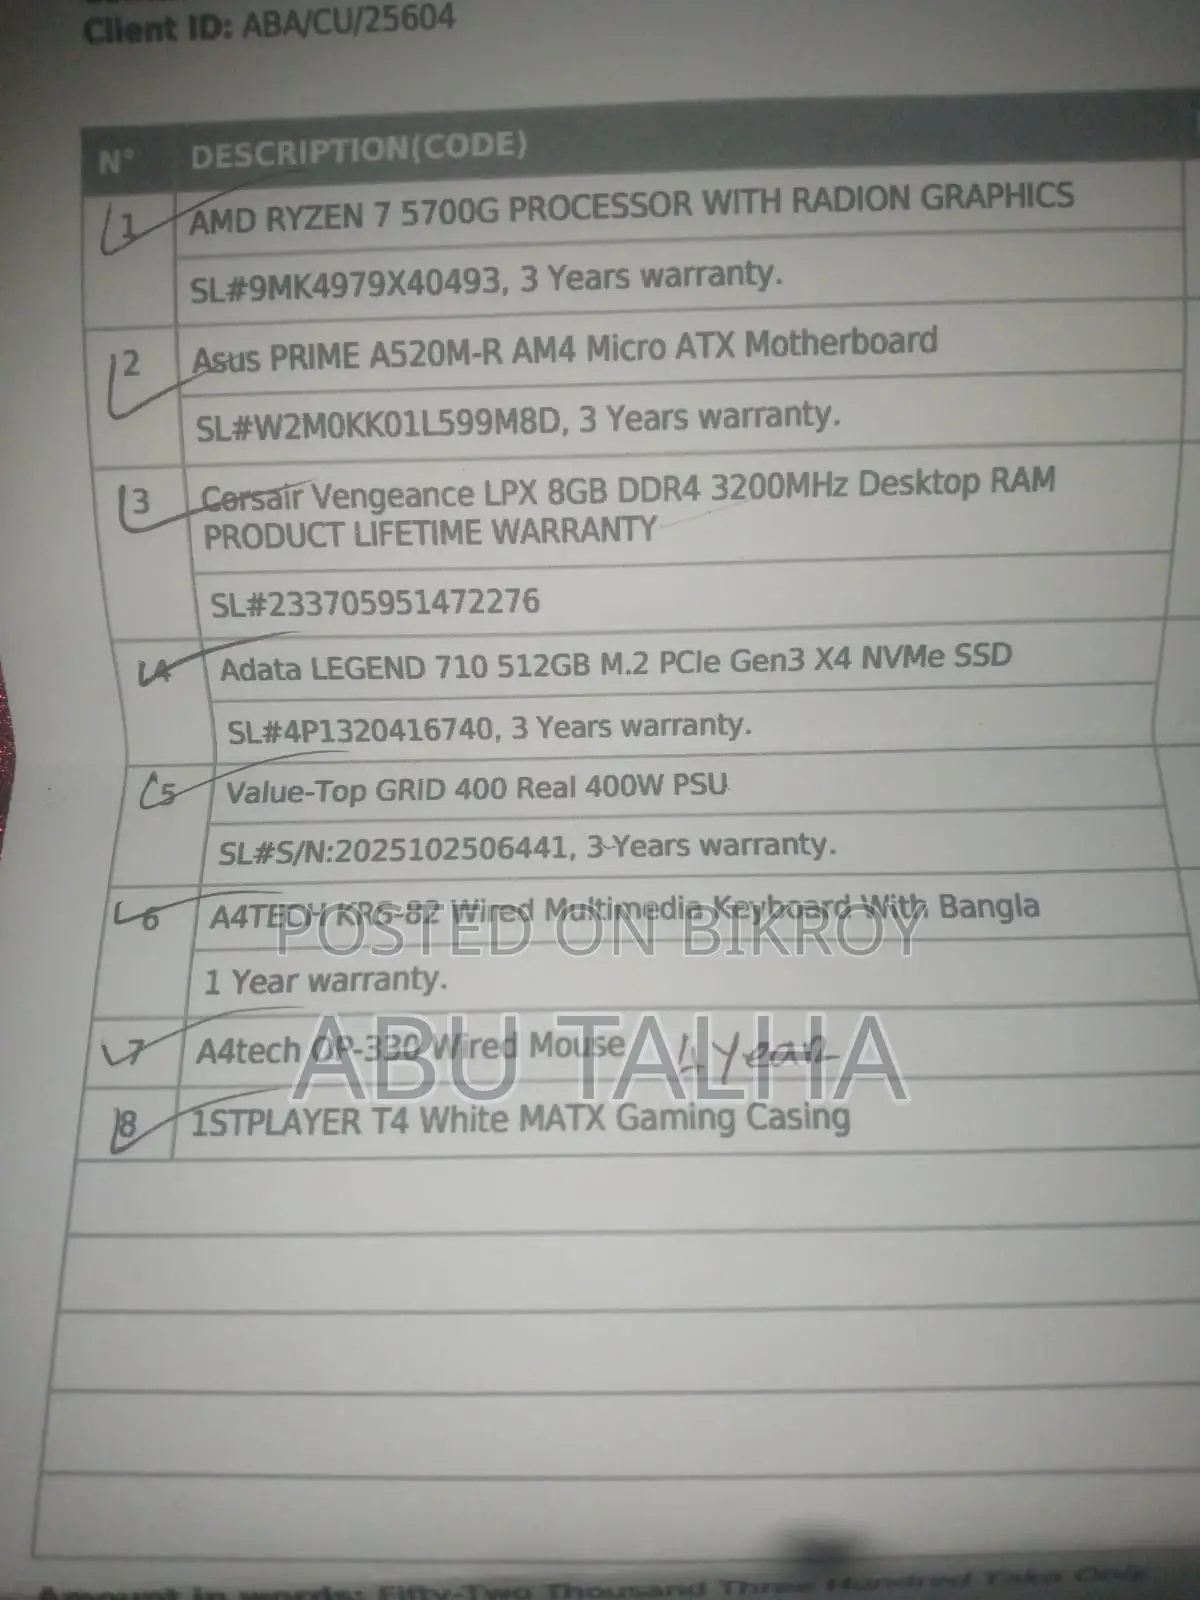 Client ID: ABA/CU/25604
N° DESCRIPTION(CODE)
1 AMD RYZEN 7 5700G PROCESSOR WITH RADION GRAPHICS
SL#9MK4979X40493, 3 Years warranty.
2 Asus PRIME A520M-R AM4 Micro ATX Motherboard
SL#W2M0KK01L599M8D, 3 Years warranty.
3 Corsair Vengeance LPX 8GB DDR4 3200MHz Desktop RAM
PRODUCT LIFETIME WARRANTY
SL#233705951472276
4 Adata LEGEND 710 512GB M.2 PCIe Gen3 X4 NVMe SSD
SL#4P1320416740, 3 Years warranty.
5 Value-Top GRID 400 Real 400W PSU
SL#S/N:2025102506441, 3 Years warranty.
6 A4TECH KRS-82 Wired Multimedia Keyboard With Bangla
POSTED ON BIKROY
1 Year warranty.
7 A4tech OP-330 Wired Mouse 1 Year
ABU TALHA
8 1STPLAYER T4 White MATX Gaming Casing
Amount in words: Fifty-Two Thousand Three Hundred Taka Only